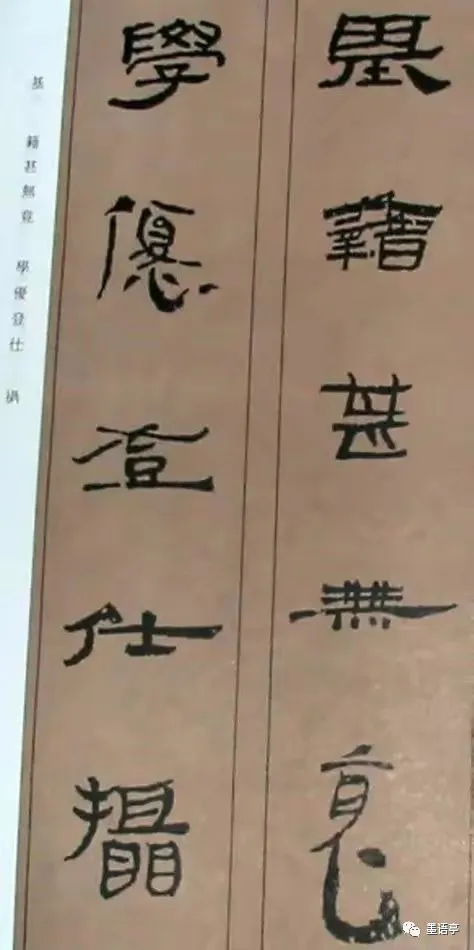 基籍甚無竟
學優登仕攝
基 籍甚無竟 學優登仕 攝
墨语亭